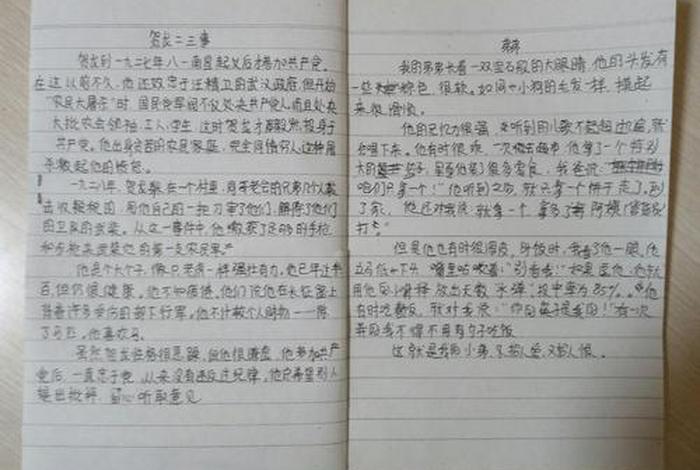 贺龙二三事
贺龙到一九二七年八一南昌起义后才参加共产党。
在这以前不久，他还效忠于汪精卫的武汉政府，但开始
"农民大屠杀"时，国民党军阀不仅处决共产党人，而且处决
大批农会领袖、工人、学生，这时贺龙才毅然投身于
共产党。他出身贫苦的农民家庭，完全同情穷人，这种屠
杀激起他的愤怒。
一九二八年，贺龙躲在一个村里，同哥老会的兄弟几个人
击收税的，用他自己的一把刀宰了他们，解除了他们
的卫队的武装。从这一事件中，他缴获了足够的手枪
和步枪来武装他的第一支农民军。"
他是个大个子，像只老虎一样强壮有力。他已年过半
百，但仍很健康。他不知疲倦。他们说他在长征路上
背着许多受伤的部下行军。他不计较个人财物——除
了马匹。他喜欢马。
虽然贺龙性格很急躁，但他很谦虚，他参加共产
党后，一直忠于党，从来没有违反过纪律。他总希望别人
提出批评，留心听取意见
弟弟
我的弟弟长着一双宝石般的大眼睛，他的头发有
一些棕色，很软。如同小狗的毛发一样，摸起
来很滑顺。
他的记忆力很强，听到的儿歌不超过 遍，就
会唱下来。他有时很 ，一次 去超市，他拿了一个特别
大的 ，里面他装了很多零食，我爸说：
咱们只拿一个！"他听到之后，就只拿一个饼干走了。到
了家，他还对我说：就拿一个，拿多了 阿姨
打。"
但是他也有时很调皮，每饭时，我看了他一眼，他
立马低下头，嘴里咕哝着："别看我！"如果 他，他就
用他 放出天数"水弹"，投中率为85%。 他
有时吃着饭，我对 ："你的筷子是我的！"有一次
我不懂不用勺子吃饭
这就是我的小弟，又招人爱，又招人恨。